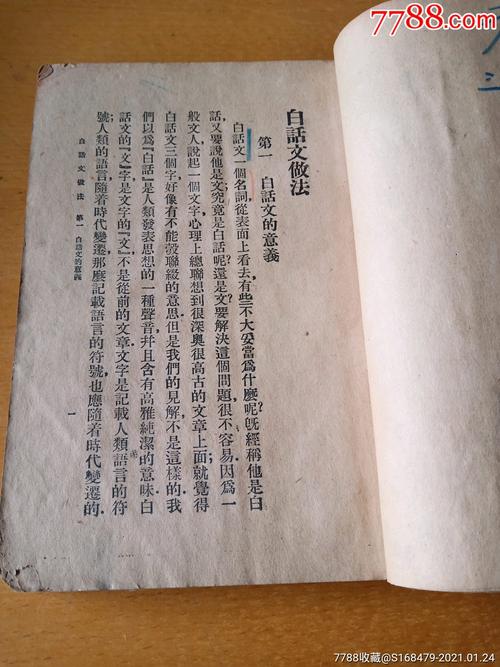 7788.com
白話文做法
第一 白話文的意義
白話文一個名詞，從表面上看去，有些不大妥當，爲什麼呢？旣經稱他是白
話，又要說他是文，究竟是白話呢？還是文？要解決這個問題，很不容易，因爲一
般文人，說起一個文字，心理上總聯想到很深奧很高古的文章上面；就覺得
白話文三個字，好像有不能彀聯綴的意思，但是我們的見解，不是這樣的，我
們以爲『白話』是人類發表思想的一種聲音，幷且含有高雅純潔的意味，白
話文的『文』字，是文字的『文』，不是從前的文章，文字是記載人類語言的符
號；人類的語言，隨着時代變遷，那麼記載語言的符號，也應隨着時代變遷的，
白話文做法 第一 白話文的意義
一
7788收藏@S168479-2021.01.24